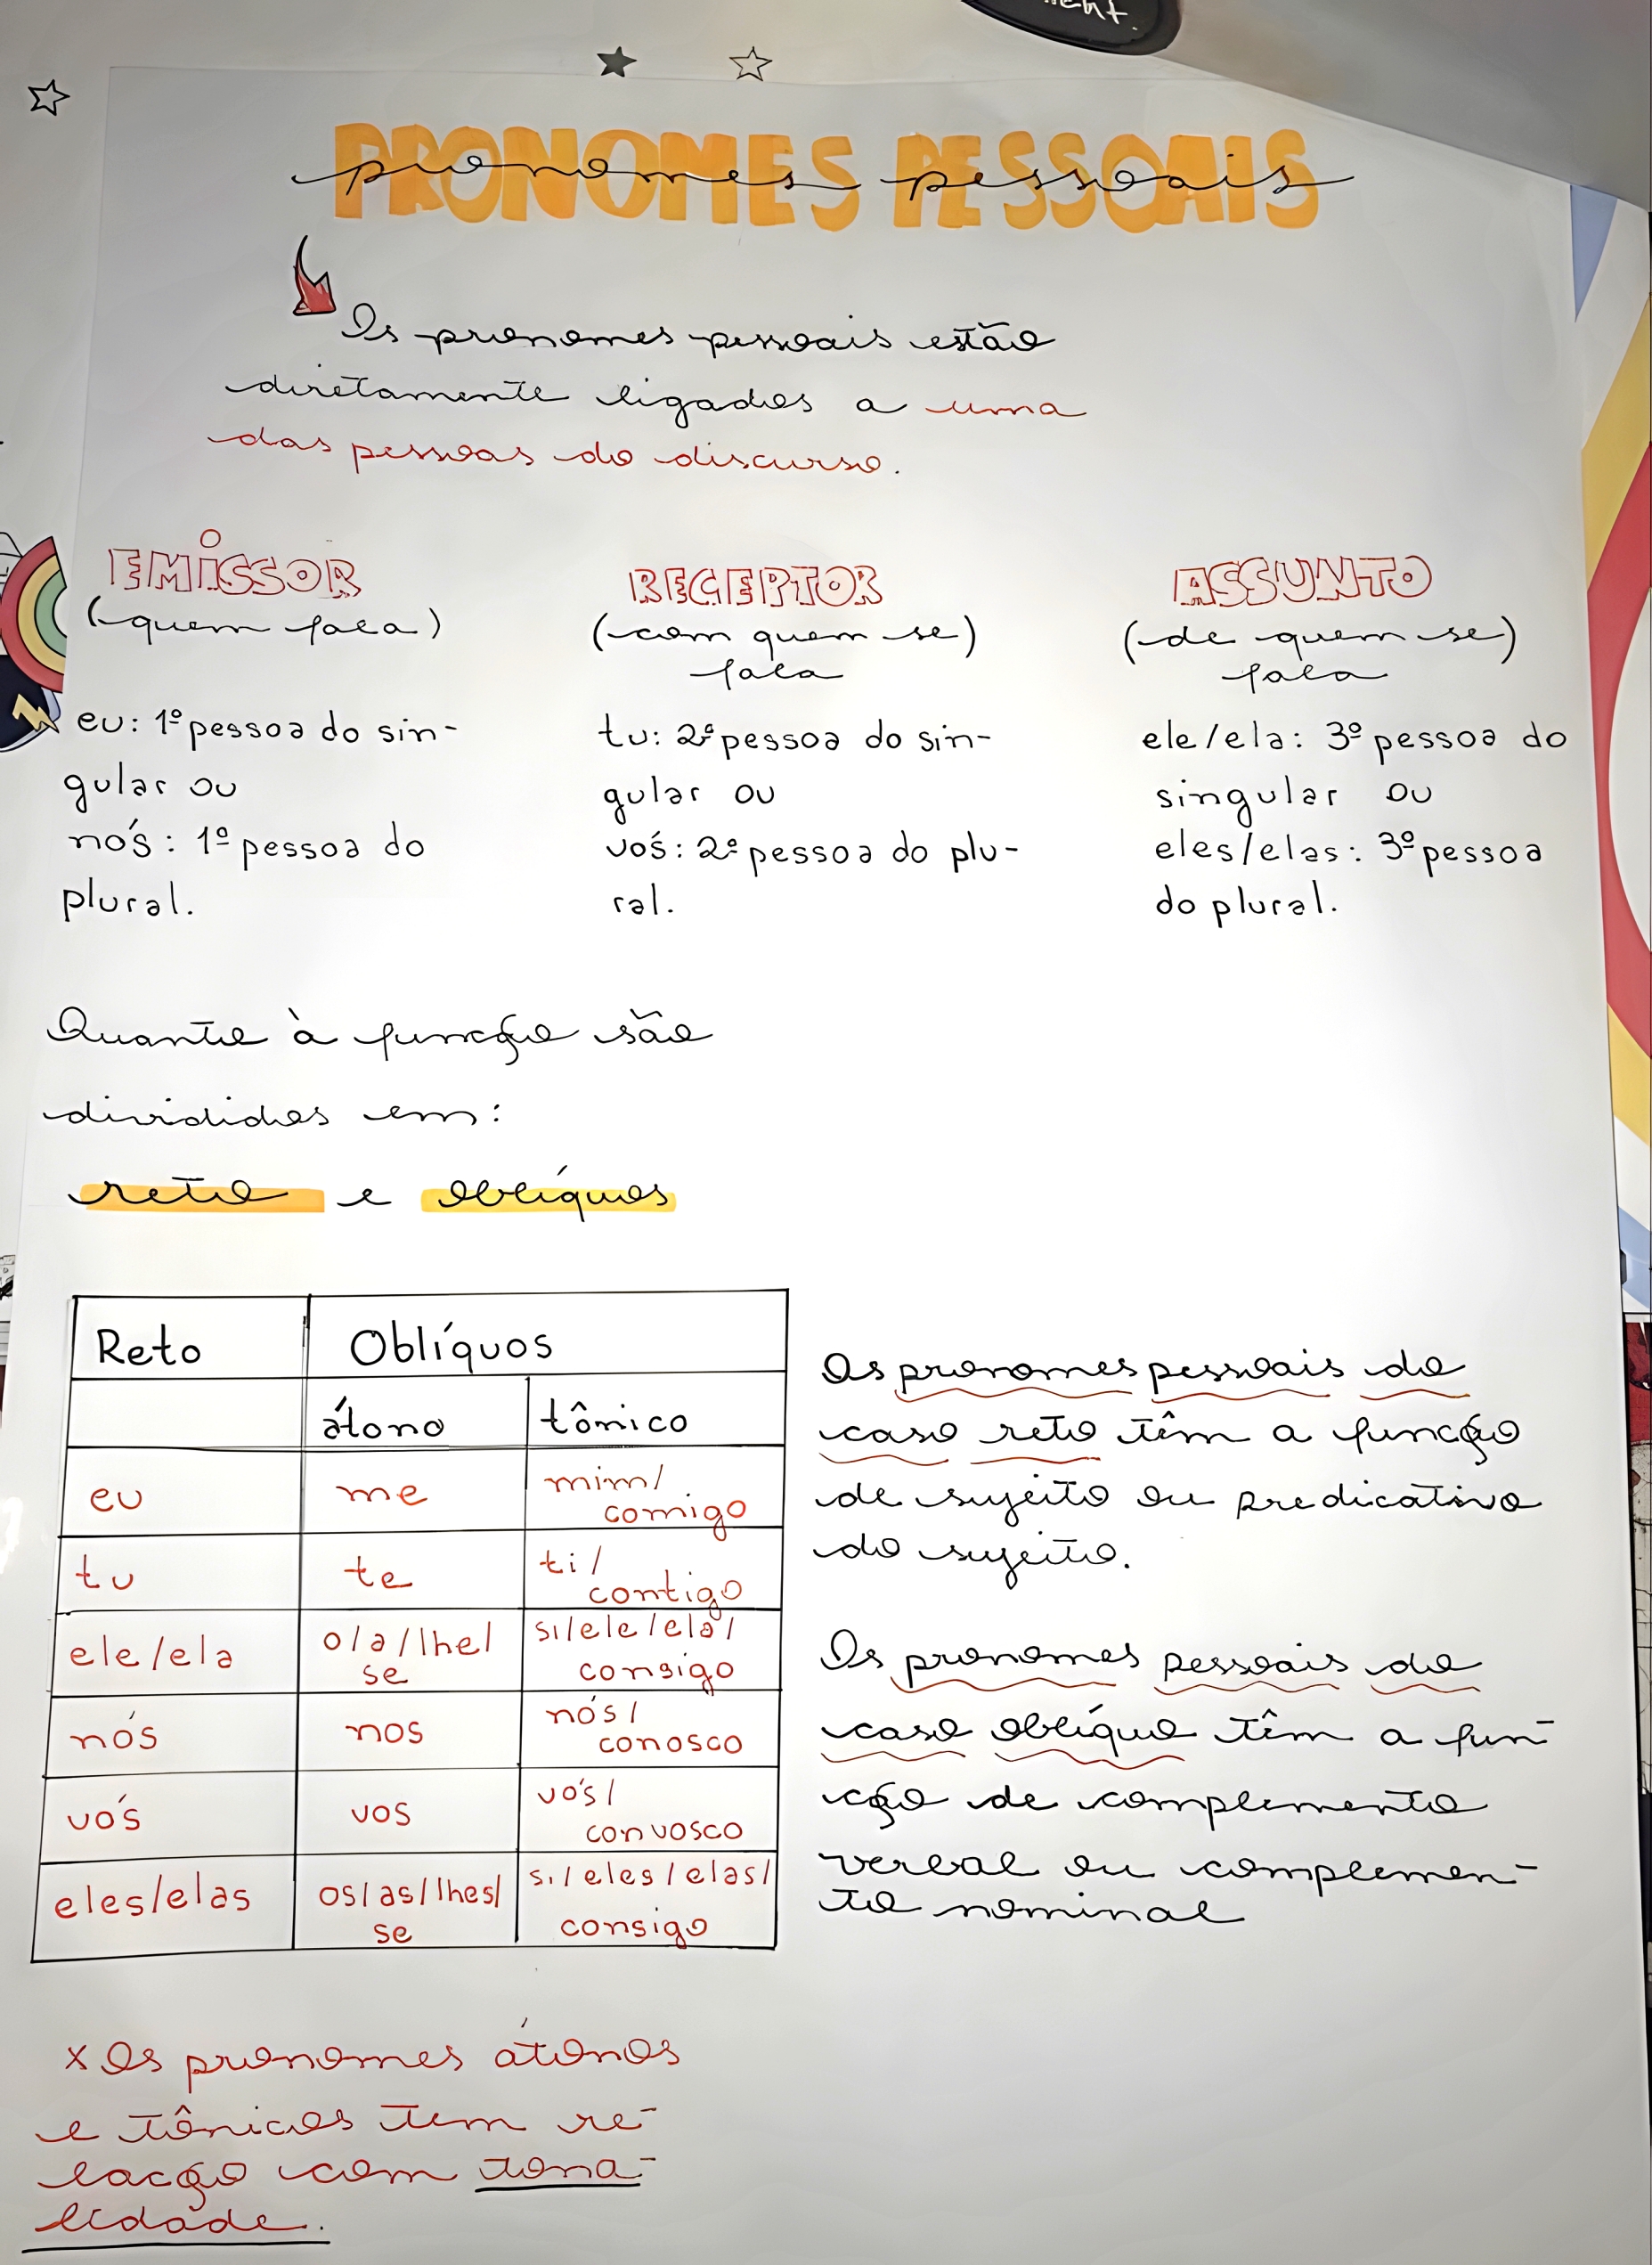 PRONOMES PESSOAIS
pronomes pessoais
Os pronomes pessoais estão
diretamente ligados a uma
das pessoas do discurso.
EMISSOR
(quem fala)
eu: 1º pessoa do sin-
gular ou
nós: 1º pessoa do
plural.
RECEPTOR
(com quem se)
fala
tu: 2º pessoa do sin-
gular ou
vós: 2º pessoa do plu-
ral.
ASSUNTO
(de quem se)
fala
ele/ela: 3º pessoa do
singular ou
eles/elas: 3º pessoa
do plural.
Quanto à função são
divididos em:
reto e oblíquos
Reto Oblíquos
átono tônico
eu me mim/
comigo
tu te ti/
contigo
ele/ela o/a/lhe/ si/ele/ela/
se consigo
nós nos nós/
conosco
vós vos vós/
convosco
eles/elas os/as/lhes/ si/eles/elas/
se consigo
Os pronomes pessoais do
caso reto têm a função
de sujeito ou predicativo
do sujeito.
Os pronomes pessoais do
caso oblíquo têm a fun-
ção de complemento
verbal ou complemen-
to nominal
x Os pronomes átonos
e tônicos tem re-
lação com tona-
lidade.